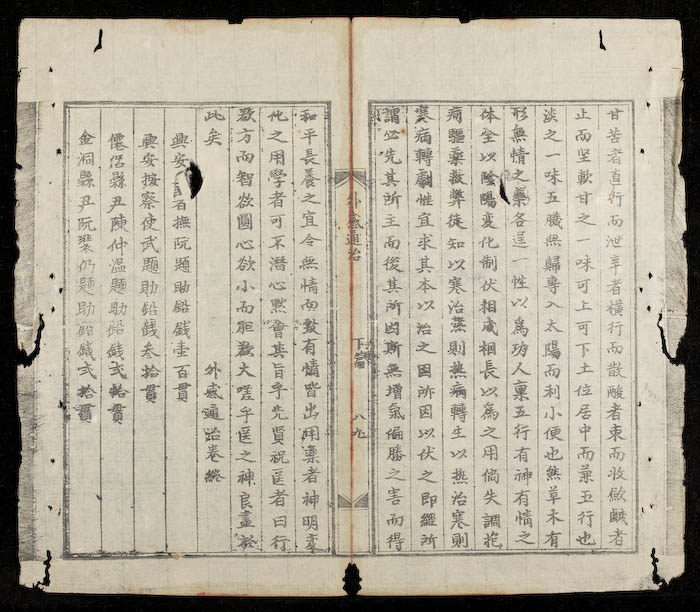 甘苦者直行而泄辛者橫行而散酸者束而收斂鹹者
止而坚軟甘之一味可上可下土位居中而兼五行也
淡之一味五臟無歸專入太陽而利小便也然草木有
形無情之藥各逞一性以爲功人稟五行有神有情之
体全以陰陽变化制伏相咸相長以爲之用倘失調抱
病驅藥救弊徒知以寒治热則热病轉生以热治寒則
寒病轉劇惟宜求其本以治之因所因以伏之即經所
謂必先其所主而後其所因斯無增氣偏勝之害而得
外感通治
下
八九
和平長養之宜令無情而数有情皆出用藥者神明变
化之用學者可不潛心黙會其旨乎先賢祝医者曰行
欲方而智欲圆心欲小而胆欲大嗟乎医之神良盡於
此矣
外感通治卷終
興安 百撫阮題助鉛錢壹百貫
興安按察使武題助鉛錢叁拾貫
僊侶縣尹陳仲温題助鉛錢弍拾貫
金洞縣尹阮裴仍題助鉛錢弍拾貫